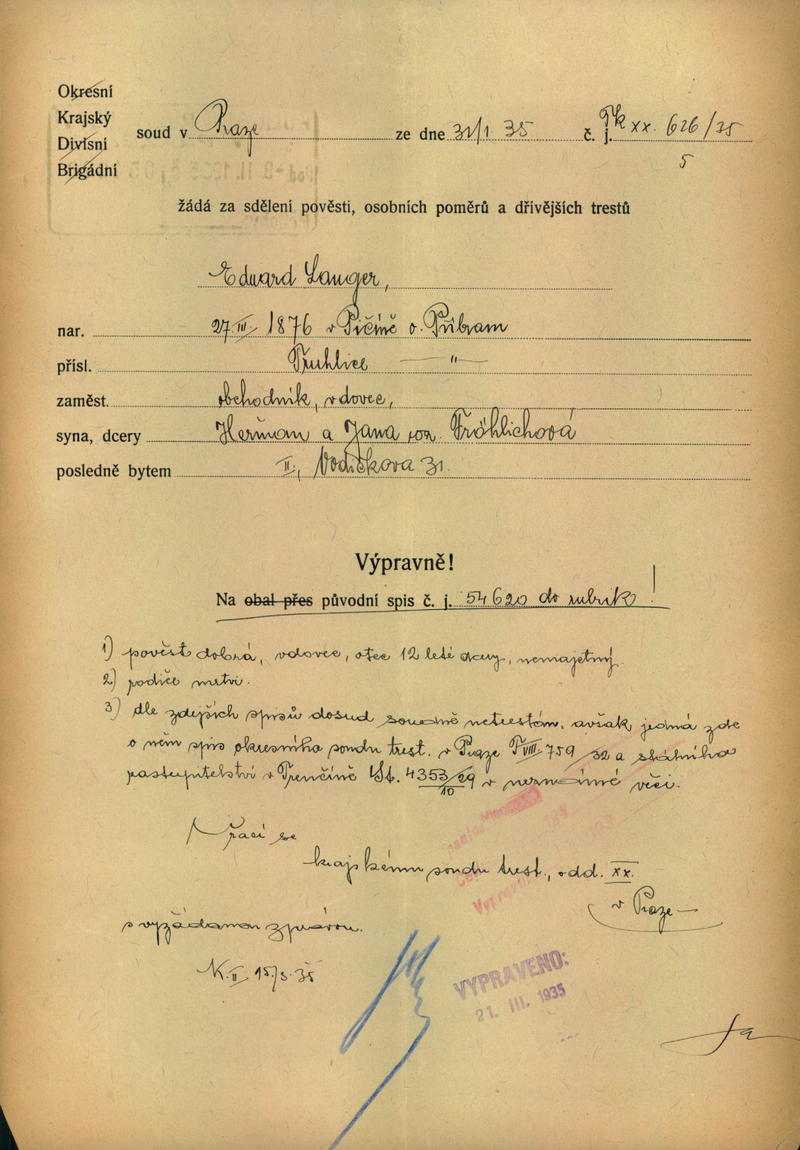 Okresní
Krajský
Divisní
Brigádní
soud v Praze ze dne 31/1. 35 č. j. Tk XX. 626/35
5
žádá za sdělení pověsti, osobních poměrů a dřívějších trestů
Eduard Langer,
nar. 27. III. 1876 v Pičíně o. Příbram
přísl. Truhlice — " —
zaměst. obchodník, vdovec,
syna, dcery Heřman a Jana roz. Fröhlichová
posledně bytem II., Vodičkova 31.
Výpravně!
Na obal přes původní spis č. j. 54620 do rubrik !
1) pověst dobrá, vdovec, otec 12 leté dcery, nemajetný.
2) rodiče mrtvi.
3) dle zdejších spisů dosud soudně netrestán, avšak jedná zde
o něm spis okresního soudu trest. v Praze T VIII. 759/32 a státního
zastupitelství v Trenčíně St. 4353/29 v neznámé věci.
10
Vrací se
krajskému soudu trest., odd. XX.
v Praze
s vyžádanou zprávou.
K. II. 15/3. 35
VYPRAVENO:
21. III. 1935